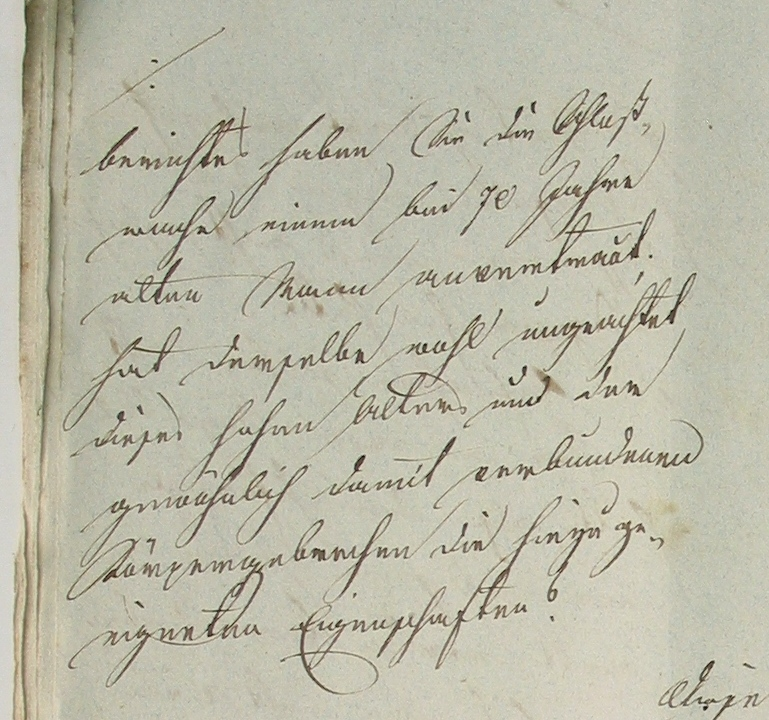 berichtet haben Sie die Schloß-
wache einem bei 70 Jahre
alten Mann anvertraut.
hat derselbe wohl ungeachtet
dieses hohen Alters und der
gewöhnlich damit verbundenen
Körpergebrechen die hiezu ge-
eigneten Eigenschaften?